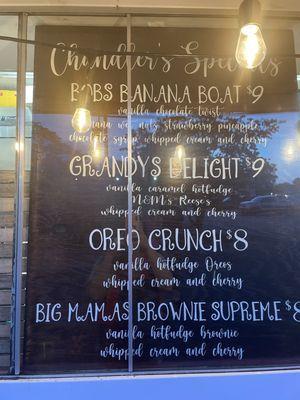 Chandler's Specials
BOBS BANANA BOAT $9
vanilla chocolate twist
banana wet nuts strawberry pineapple
chocolate syrup whipped cream and cherry
GRANDYS DELIGHT $9
vanilla caramel hotfudge
M&M's Reese's
whipped cream and cherry
OREO CRUNCH $8
vanilla hotfudge Oreos
whipped cream and cherry
BIG MAMAS BROWNIE SUPREME $8
vanilla hotfudge brownie
whipped cream and cherry